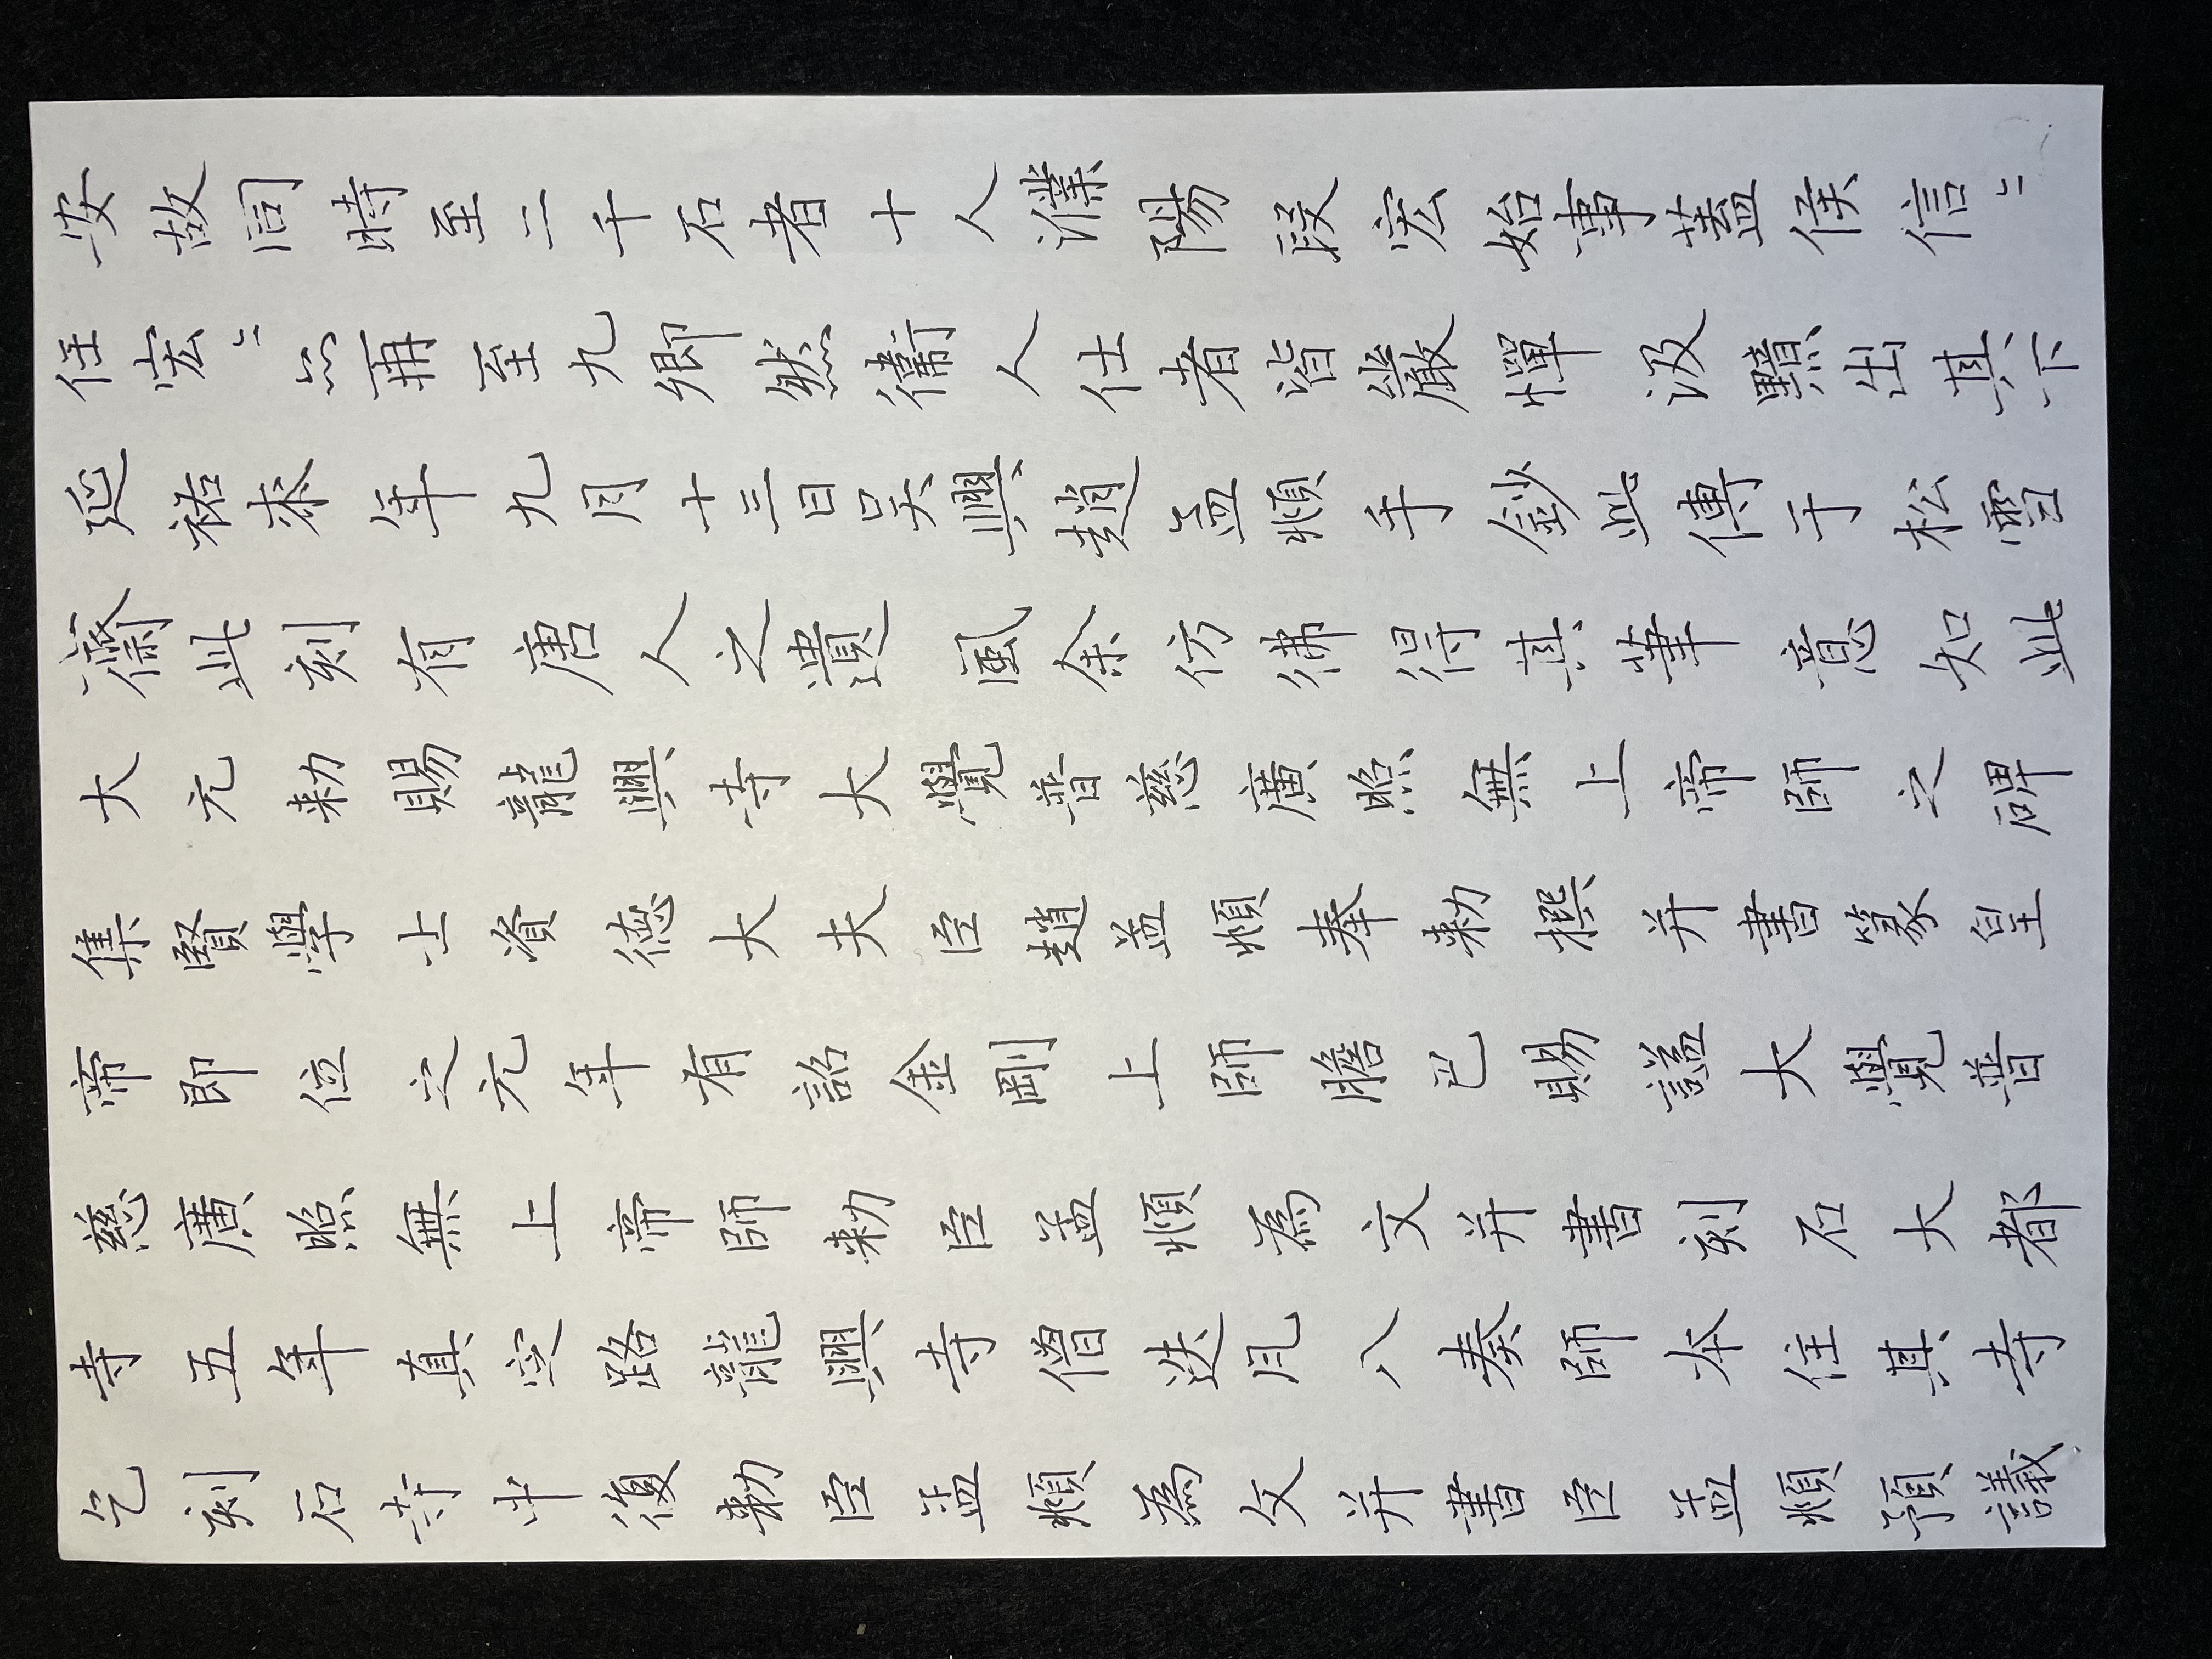 安故同時至二千石者十人濮陽段宏始事蓋侯信〻
任宏〻亦再至九卿然衞人仕者皆嚴憚汲黯出其下
延祐柒年九月十三日吴興趙孟頫手鈔此傳于松雪
齋此刻有唐人之遺風余仿彿得其筆意知此
大元勅賜龍興寺大覺普慈廣照無上帝師之碑
集賢學士資德大夫臣趙孟頫奉勅撰并書篆皇
帝即位之元年有詔金剛上師膽巴賜謚大覺普
慈廣照無上帝師勅臣孟頫為文并書刻石大都
寺五年真定路龍興寺僧迭凡八奏師本住其寺
乞刻石寺中復勅臣孟頫為文并書臣孟頫預議